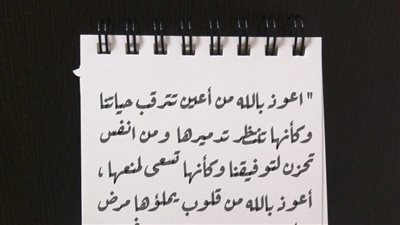 " اعوذ بالله من أعين تترقب حياتنا
وكأنها تنتظر تدميرها ومن انفس
تحزن لتوفيقنا وكأنها تسعى لمنعها ،
أعوذ بالله من قلوب يملؤها مرض